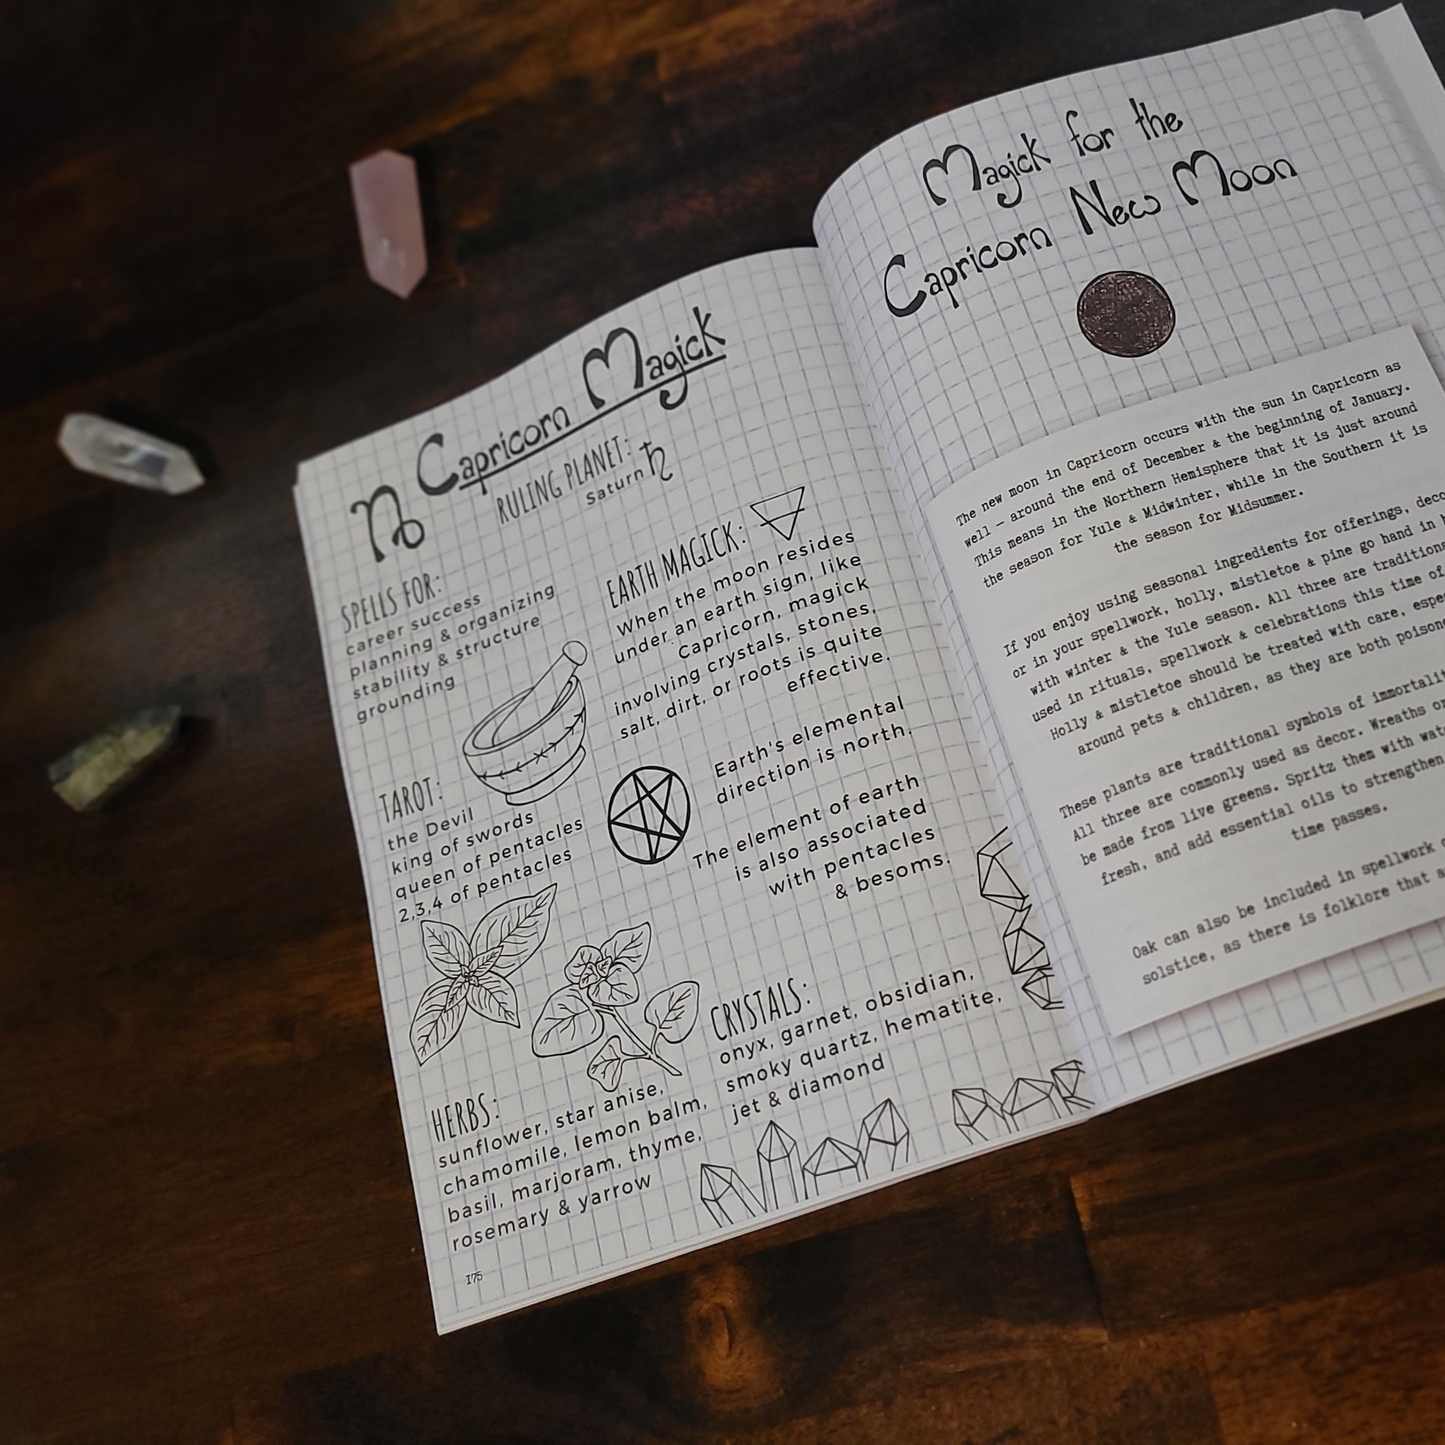 Capricorn Magick
RULING PLANET:
Saturn
SPELLS FOR:
career success
planning & organizing
stability & structure
grounding
TAROT:
the Devil
king of swords
queen of pentacles
2,3,4 of pentacles
HERBS:
sunflower, star anise,
chamomile, lemon balm,
basil, marjoram, thyme,
rosemary & yarrow
175
EARTH MAGICK:
When the moon resides
under an earth sign, like
Capricorn, magick
involving crystals, stones,
salt, dirt, or roots is quite
effective.
Earth's elemental
direction is north.
The element of earth
is also associated
with pentacles
& besoms.
CRYSTALS:
onyx, garnet, obsidian,
smoky quartz, hematite,
jet & diamond
Magick for the
Capricorn New Moon
The new moon in Capricorn occurs with the sun in Capricorn as
well — around the end of December & the beginning of January.
This means in the Northern Hemisphere that it is just around
the season for Yule & Midwinter, while in the Southern it is
the season for Midsummer.
If you enjoy using seasonal ingredients for offerings,
or in your spellwork, holly, mistletoe & pine go hand in
with winter & the Yule season. All three are
used in rituals, spellwork & celebrations this time of
Holly & mistletoe should be treated with care,
around pets & children, as they are both
These plants are traditional symbols of
All three are commonly used as decor. Wreaths
be made from live greens. Spritz them with
fresh, and add essential oils to strengthen
time passes.
Oak can also be included in spellwork
solstice, as there is folklore that